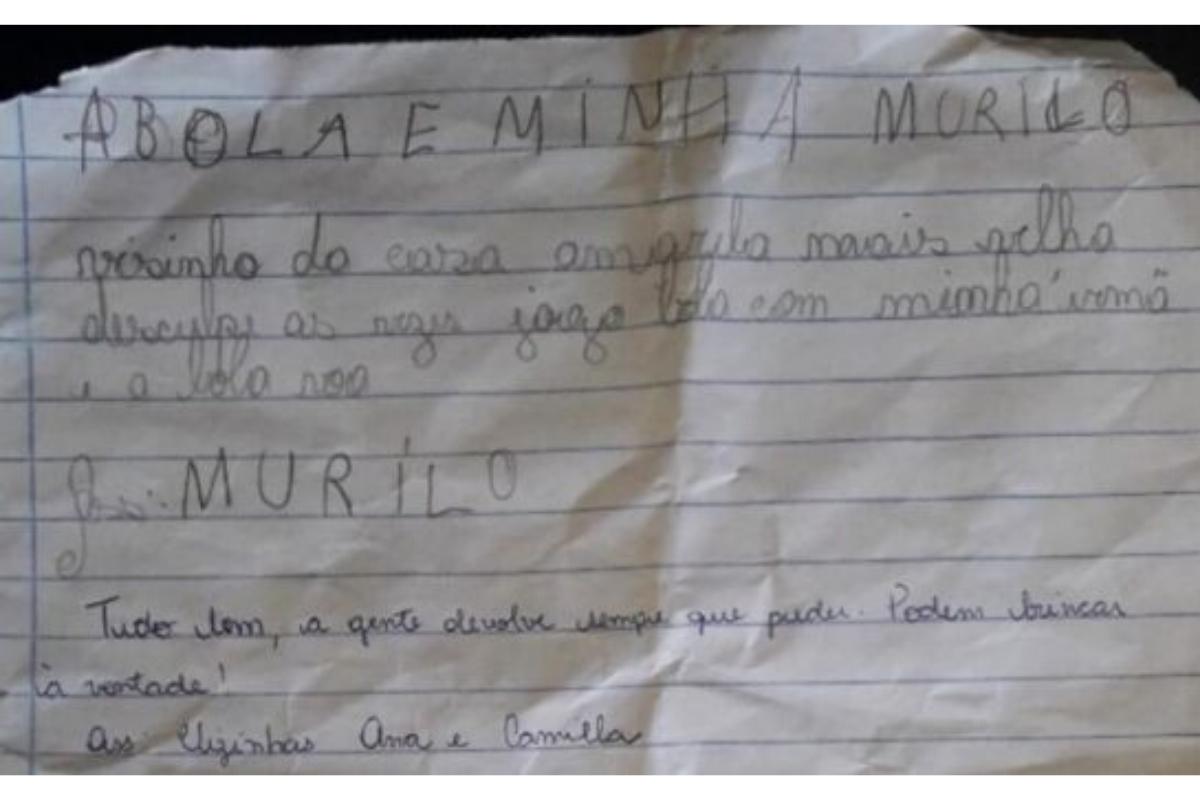 ABOLA E MINHA MURILO
vizinho da casa amarela maais velha
desculpe as vezes jogo bola com minha irmã
e a bola voa
Assi: MURILO
Tudo bem, a gente devolve sempre que puder. Podem brincar
à vontade!
Ass: Vizinhas Ana e Camilla